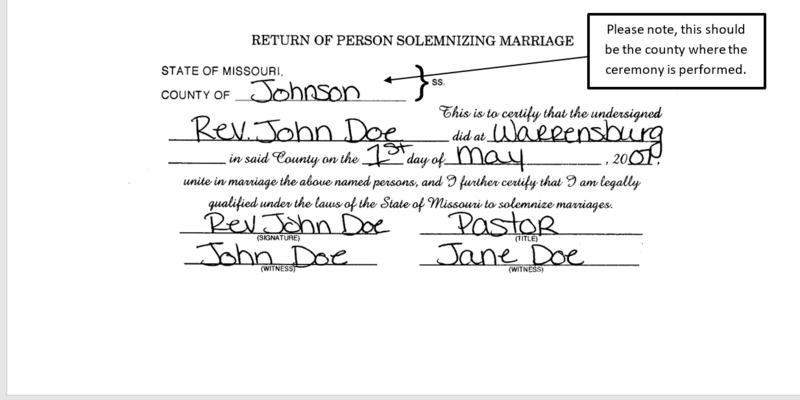 RETURN OF PERSON SOLEMNIZING MARRIAGE
Please note, this should
be the county where the
ceremony is performed.
STATE OF MISSOURI,
COUNTY OF Johnson } ss.
This is to certify that the undersigned
Rev. John Doe did at Warrensburg
in said County on the 1st day of May, 20
unite in marriage the above named persons, and I further certify that I am legally
qualified under the laws of the State of Missouri to solemnize marriages.
Rev John Doe Pastor
(SIGNATURE) (TITLE)
John Doe Jane Doe
(WITNESS) (WITNESS)